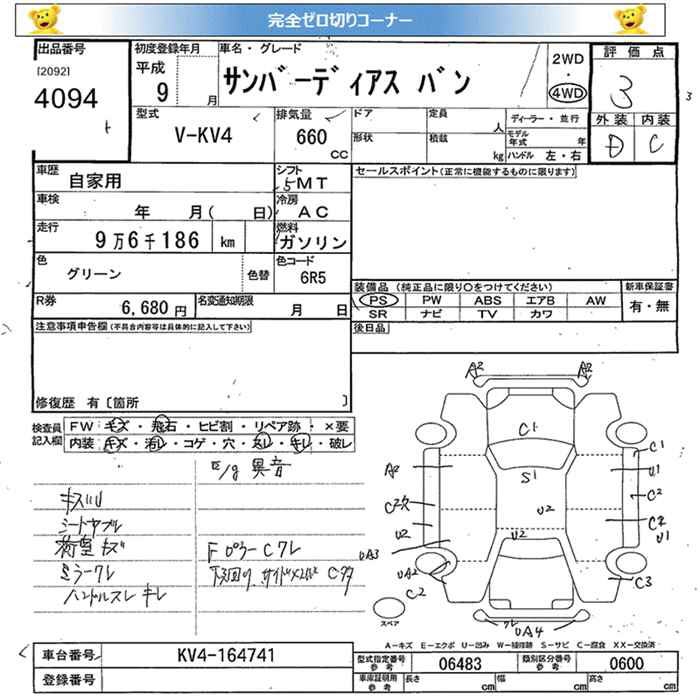 完全ゼロ切りコーナー
出品番号 初度登録年月 車名・グレード 2WD 評価点
[2092] 平成 サンバーディアス バン ・ 3
4094 9 月 4WD 外装 内装
型式 排気量 ドア 定員 人 ディーラー・並行 D C
V-KV4 660 CC 形状 積載 kg モデル年式 年 ハンドル 左・右
車歴 自家用 シフト 5MT セールスポイント(正常に機能するものに限ります)
車検 年 月( 日) 冷房 AC
走行 9万6千186 km 燃料 ガソリン
色 グリーン 色替 色コード 6R5
装備品(純正品に限り○をつけてください) 新車保証書
PS PW ABS エアB AW 有・無
SR ナビ TV カワ
R券 6,680円 名変通知期限 月 日
後日品
注意事項申告欄(不具合内容等は具体的に記入して下さい)
修復歴 有〔箇所 〕
検査員記入欄 FW キズ・飛石・ヒビ割・リペア跡・×要
内装 キズ・汚レ・コゲ・穴・スレ・キレ・破レ
E/g 異音
キズU
荷室 キズ
ミラークレ
ハンドルスレ キレ
A2 A2
C1
S1
U2
U2
A2
C2穴
U2
UA3
UA2
C2
C1
U1
C2
C2
U1
C3
UA4
スペア
A－キズ E－エクボ U－凹み W－補修跡 S－サビ C－腐食 XX－交換済
車台番号 KV4-164741
登録番号
型式指定番号参考 06483 類別区分番号参考 0600
車庫証明用参考 長さ cm 幅 cm 高さ cm
3